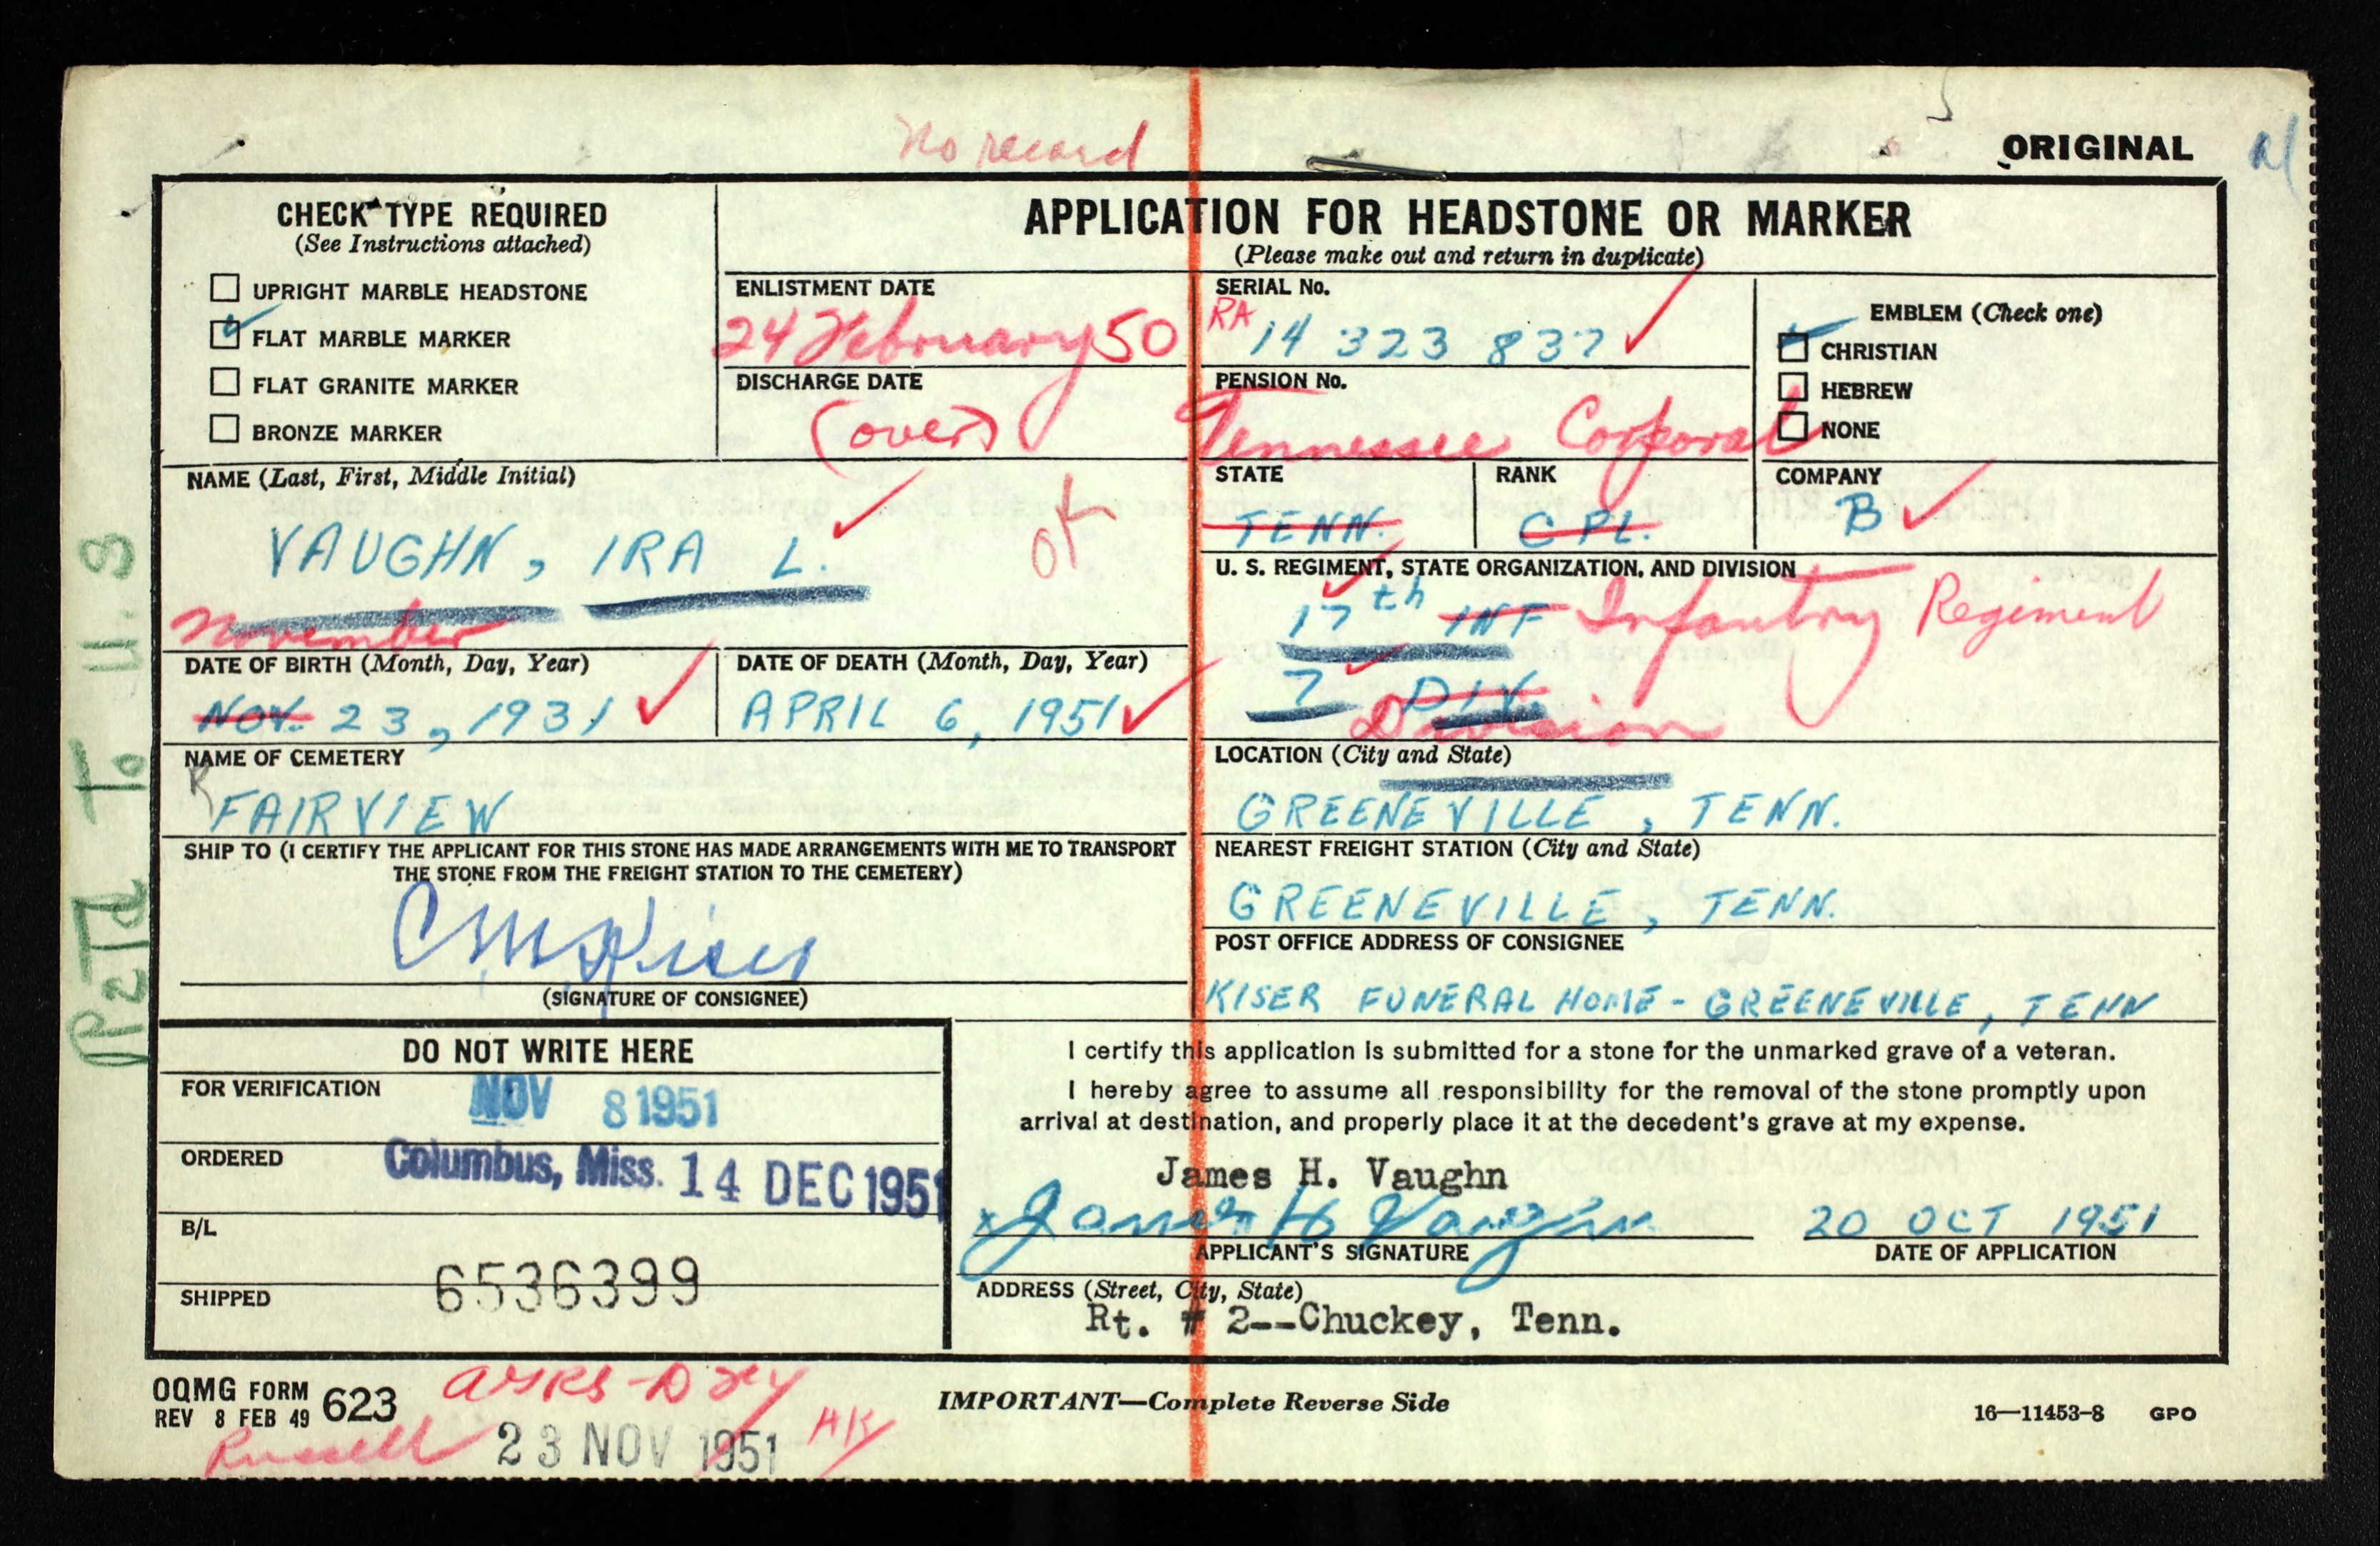 No record
ORIGINAL
CHECK TYPE REQUIRED
(See Instructions attached)
UPRIGHT MARBLE HEADSTONE
FLAT MARBLE MARKER
FLAT GRANITE MARKER
BRONZE MARKER
APPLICATION FOR HEADSTONE OR MARKER
(Please make out and return in duplicate)
ENLISTMENT DATE
24 February 50
SERIAL No.
RA 14 323 837
EMBLEM (Check one)
CHRISTIAN
HEBREW
NONE
DISCHARGE DATE
(over)
PENSION No.
Tennessee Corporal
NAME (Last, First, Middle Initial)
VAUGHN, IRA L.
OK
STATE
TENN.
RANK
CPL.
COMPANY
B
U. S. REGIMENT, STATE ORGANIZATION, AND DIVISION
17th INF Infantry Regiment
7 DIV.
Division
November
DATE OF BIRTH (Month, Day, Year)
NOV. 23, 1931
DATE OF DEATH (Month, Day, Year)
APRIL 6, 1951
NAME OF CEMETERY
FAIRVIEW
LOCATION (City and State)
GREENEVILLE, TENN.
SHIP TO (I CERTIFY THE APPLICANT FOR THIS STONE HAS MADE ARRANGEMENTS WITH ME TO TRANSPORT
THE STONE FROM THE FREIGHT STATION TO THE CEMETERY)
(SIGNATURE OF CONSIGNEE)
NEAREST FREIGHT STATION (City and State)
GREENEVILLE, TENN.
POST OFFICE ADDRESS OF CONSIGNEE
KISER FUNERAL HOME - GREENEVILLE, TENN
DO NOT WRITE HERE
FOR VERIFICATION
NOV 8 1951
ORDERED
Columbus, Miss. 14 DEC 1951
B/L
6536399
SHIPPED
I certify this application is submitted for a stone for the unmarked grave of a veteran.
I hereby agree to assume all responsibility for the removal of the stone promptly upon
arrival at destination, and properly place it at the decedent's grave at my expense.
James H. Vaughn
x James H Vaughn
20 OCT 1951
APPLICANT'S SIGNATURE
DATE OF APPLICATION
ADDRESS (Street, City, State)
Rt. # 2--Chuckey, Tenn.
OQMG FORM 623
REV 8 FEB 49
IMPORTANT—Complete Reverse Side
16—11453-8 GPO
Russell
23 NOV 1951
HK
To U.S